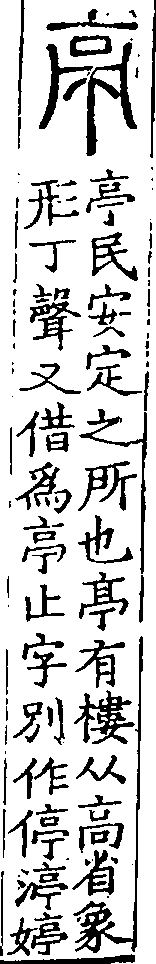 亭
亭民安定之所也亭有樓从高省象
形丁聲又借爲亭止字別作停渟婷